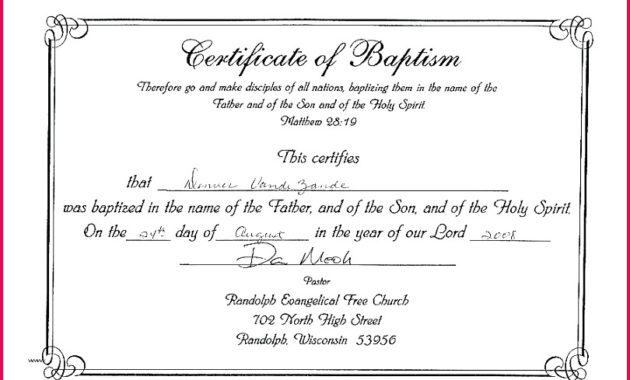 Certificate of Baptism
Therefore go and make disciples of all nations, baptizing them in the name of the
Father and of the Son and of the Holy Spirit.
Matthew 28:19
This certifies
that Vande Zande
was baptized in the name of the Father, and of the Son, and of the Holy Spirit.
On the 24th day of August in the year of our Lord 2008
Pastor
Randolph Evangelical Free Church
702 North High Street
Randolph, Wisconsin 53956
www.